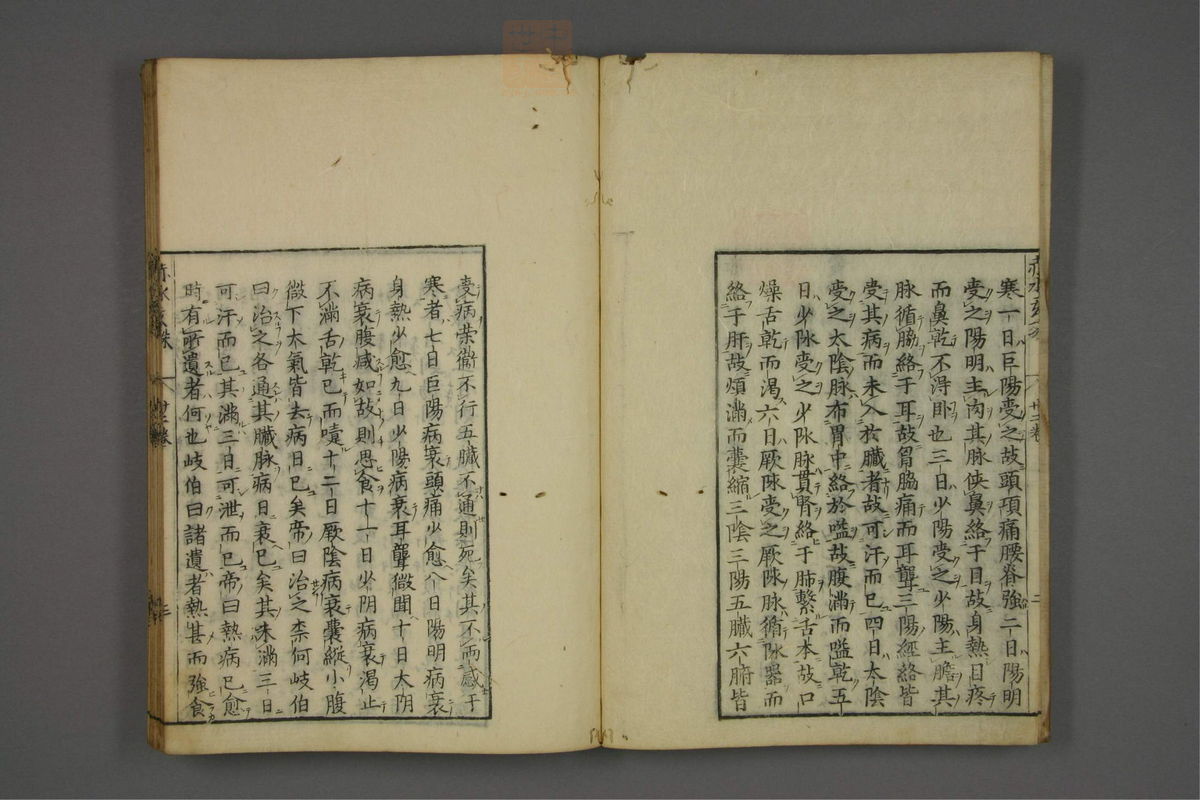 寒一日巨陽受之故頭項痛腰脊強二日陽明
受之陽明主肉其脉俠鼻絡于目故身熱目疼
而鼻乾不得卧也三日少陽受之少陽主膽其
脉循脇絡于耳故胷脇痛而耳聾三陽經絡皆
受其病而未入於臓者故可汗而已四日太陰
受之太陰脉布胃中絡於嗌故腹滿而嗌乾五
日少阴受之少阴脉貫腎絡于肺繫舌本故口
燥舌乾而渴六日厥阴受之厥阴脉循阴器而
絡于肝故煩滿而囊縮三陰三陽五臓六腑皆
受病榮衞不行五臓不通則死矣其不兩感于
寒者七日巨陽病衰頭痛少愈八日陽明病衰
身熱少愈九日少陽病衰耳聾微聞十日太阴
病衰腹减如故則思食十一日少阴病衰渴止
不滿舌乾已而嚏十二日厥陰病衰囊縱小腹
微下大氣皆去病日已矣帝曰治之柰何岐伯
曰治之各通其臓脉病日衰已矣其未滿三日
可汗而已其滿三日可泄而已帝曰熱病已愈
時有所遺者何也岐伯曰諸遺者熱甚而強食